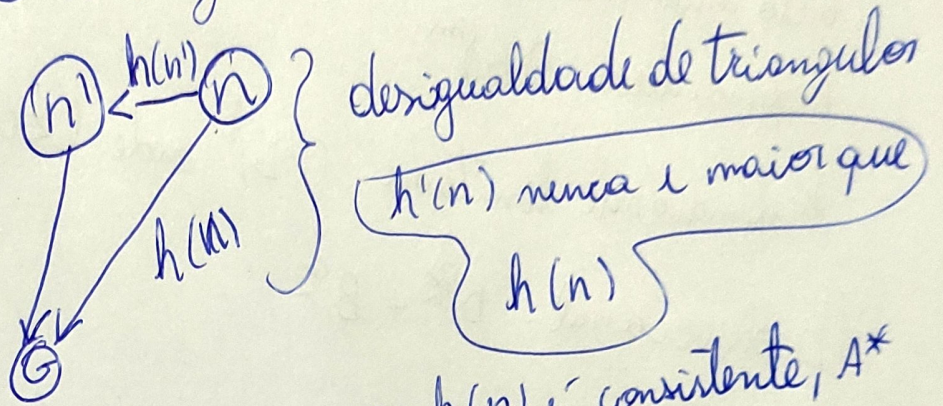 h(n')
n'
n
desigualdade de triangulos
h'(n) nunca é maior que
h(n)
h(n)
G
h(n) é consistente, A*